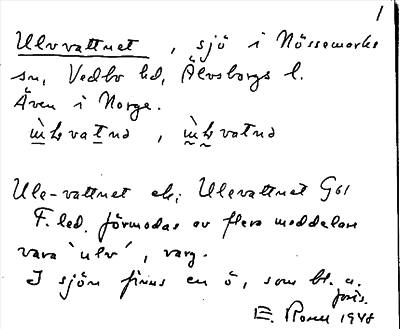 1
Ulvvattnet, sjö i Nössemarks
sn, Vedbo hd, Älvsborgs l.
Även i Norge.
Ule-vattnet ek; Ulevattnet G61
F. led. förmodas av flera meddelare
vara 'ulv', varg.
I sjön finns en ö, som bl. a.
E. 1948